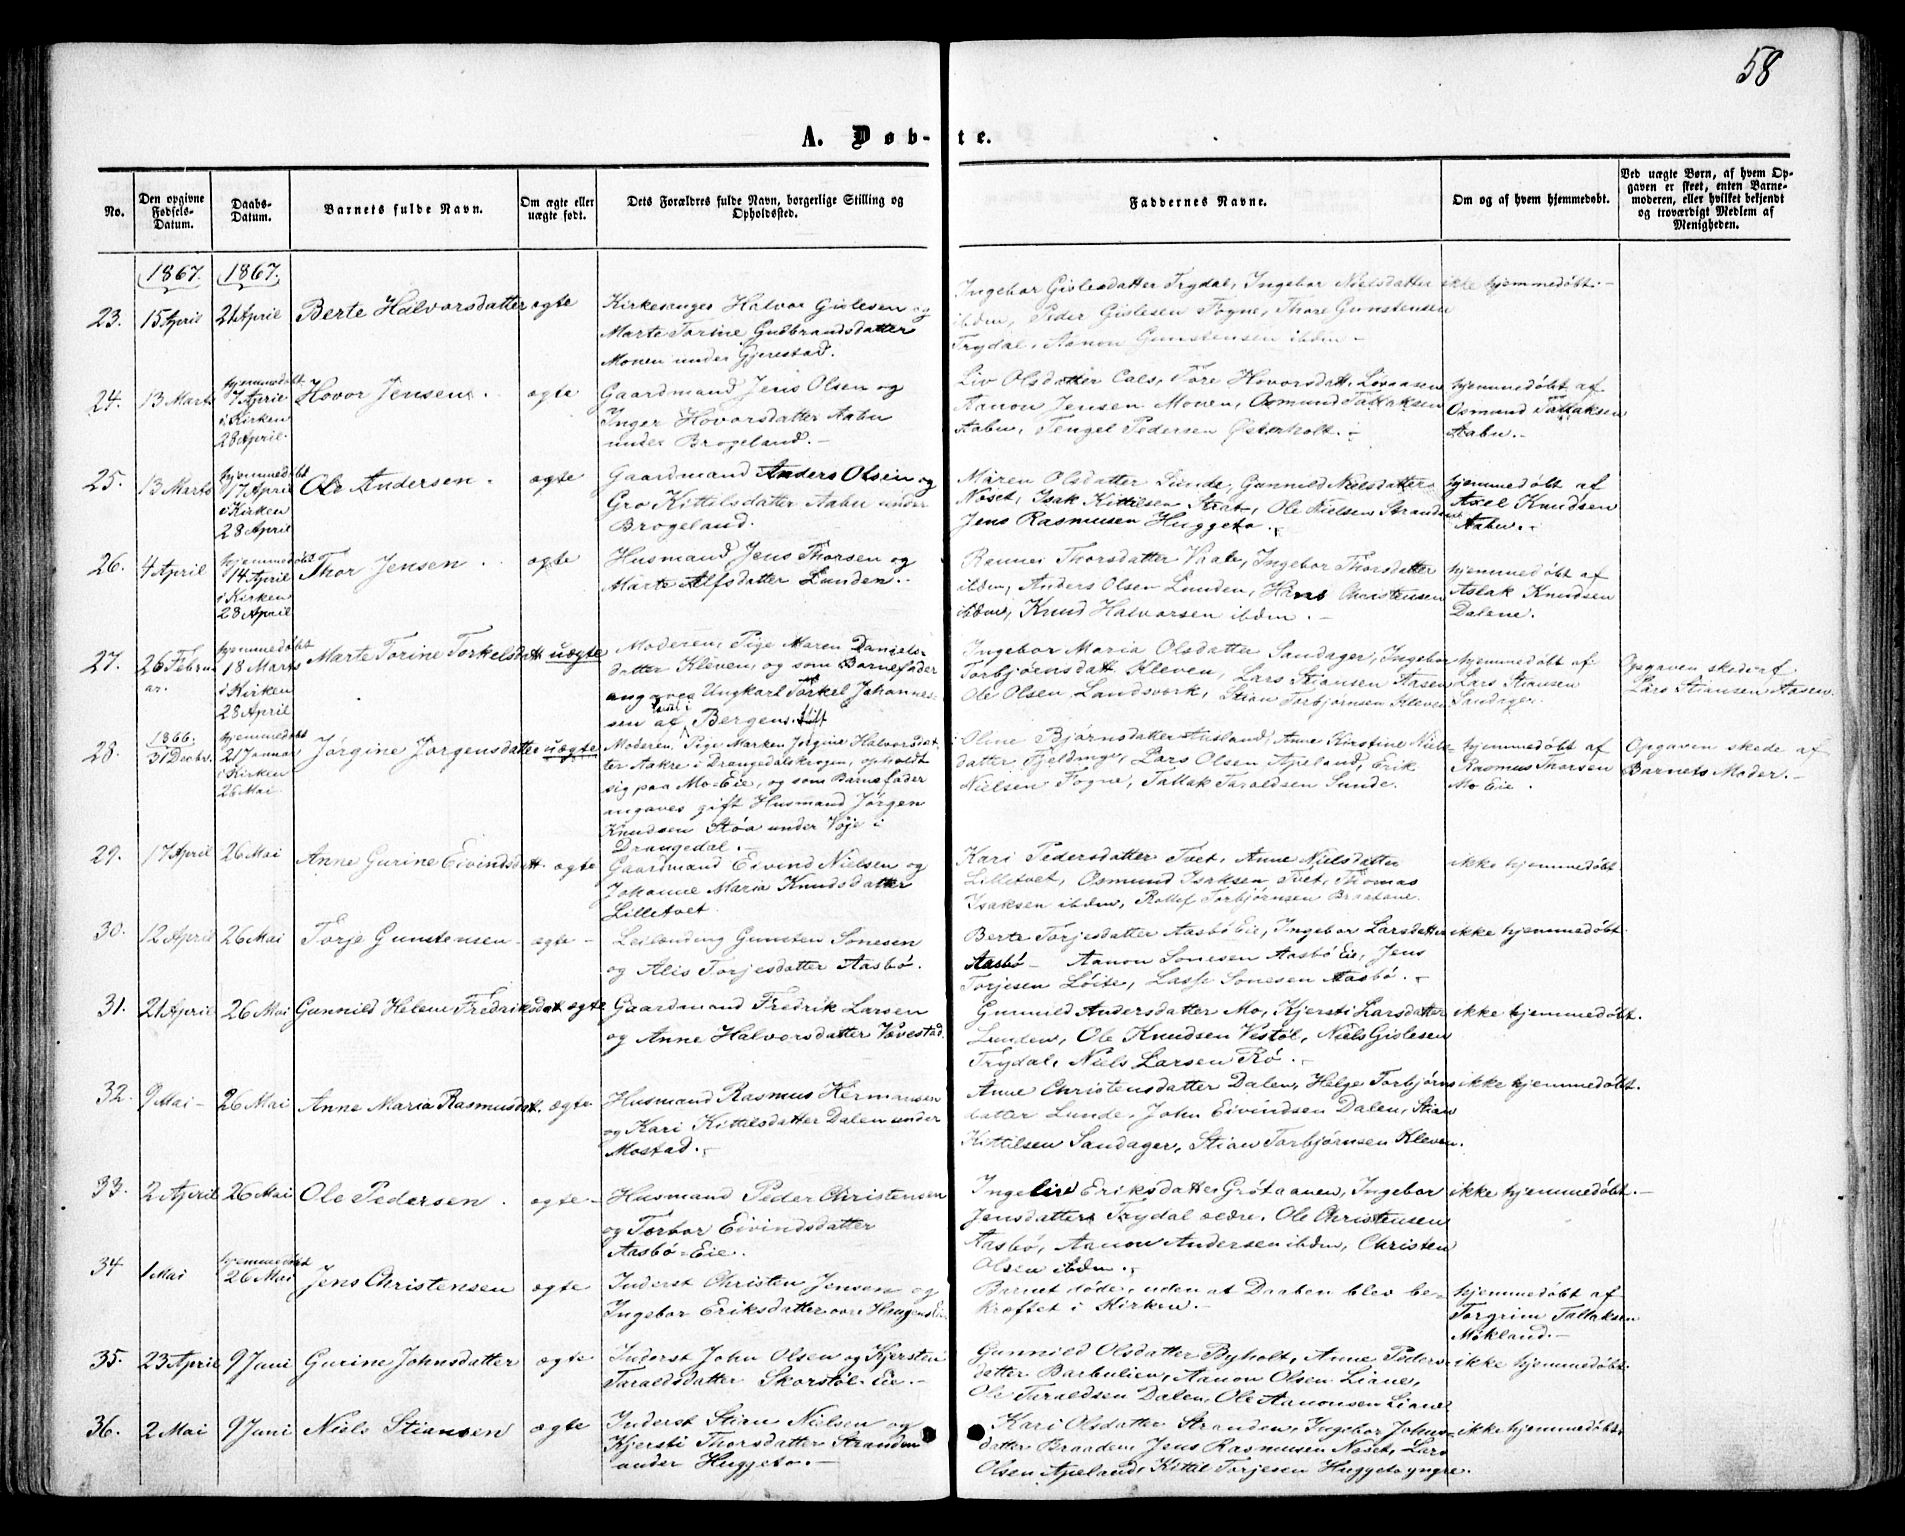 58
A. Døb-te.
No.
Den opgivne Fødsels-Datum.
Daabs-Datum.
Barnets fulde Navn.
Om ægte eller uægte født.
Dets Forældres fulde Navn, borgerlige Stilling og Opholdssted.
Faddernes Navne.
Om og af hvem hjemmedøbt.
Ved uægte Børn, af hvem Opgaven er skeet, enten Barnemoderen, eller hvilket bekjendt og troværdigt Medlem af Menigheden.
1867. 1867.
23. 15 April 21 April Berte Halvorsdatter ægte
Kirkesanger Halvor Gislesen og
Marte Torine Gulbrandsdatter
Monen under Gjerestad.
Ingebor Gislesdatter Trydal, Ingebor Nielsdatter
ibdm, Peder Gislesen Fogne, Thore Gunstensen
Trydal, Aanon Gunstensen ibdm.-
ikke hjemmedøbt.-
24. 13 Marts hjemmedøbt
7 April
i Kirken
28 April
Hovor Jensen. ægte
Gaardmand Jens Olsen og
Inger Hovorsdatter Aabu
under Brogeland.-
Liv Olsdatter Cals, Tore Hovorsdatt. Livaasen
Aanon Jensen Monen, Osmund Tallaksen
Aabu, Tengel Pedersen Østerholt.-
hjemmedøbt af
Osmund Tallaksen
Aabu.-
25. 13 Marts hjemmedøbt
17 April
i Kirken
28 April
Ole Andersen. ægte
Gaardmand Anders Olsen og
Gro Kittelsdatter Aabu under
Brogeland.
Maren Olsdatter Lunde, Gunnild Nielsdatter
Noset, Isak Kittilsen Strat, Ole Nielsen Stranden
Jens Rasmusen Huggeto.
hjemmedøbt af
Axel Knudsen
Aabu.-
26. 4 April hjemmedøbt
14 April
i Kirken
28 April
Thor Jensen. ægte
Husmand Jens Thorsen og
Marte Alfsdatter Lunden.-
Rannei Thorsdatter Vaale, Ingebor Thorsdatter
ibdm, Anders Olsen Lunden, Hans Christensen
ibdm, Knud Halvorsen ibdm.-
hjemmedøbt af
Aslak Knudsen
Dalene.
27. 26 Februar. hjemmedøbt
18 Marts
i Kirken
28 April
Marte Torine Torkelsdatt. uægte
Moderen, Pige Maren Daniels-
datter Kleven, og som Barnefader
angaves Ungkarl Torkel Johannes-
sen af Bergens Stift
Ingebor Maria Olsdatter Sandager, Ingebor
Torbjørnsdatt. Kleven, Lars Stiansen Aasen
Ole Olsen Landsverk, Stian Torbjørnsen Kleven
hjemmedøbt af
Lars Stiansen
Sandager.
Opgaven skede af
Lars Stiansen Aasen.
28. 1866.
31 Decbr. hjemmedøbt
21 Januar
i Kirken
26 Mai
Jørgine Jørgensdatter uægte
Moderen, Pige Marken Jørgine Halvorsdat-
ter Aakre i Drangedalskrogen, opholdt
sig paa Mo-Eie, og som Barnefader
angaves gift Husmand Jørgen
Knudsen Støa under Vøje i
Drangedal.-
Oline Bjørnsdatter Ausland, Anne Kirstine Niels-
datter Fjeldinge, Lars Olsen Apeland, Erik
Nielsen Fogne, Tallak Taraldsen Lunde.
hjemmedøbt af
Rasmus Thorsen
Mo Eie.
Opgaven skede af
Barnets Moder.-
29. 17 April 26 Mai Anne Gurine Eivindsdatt. ægte
Gaardmand Eivind Nielsen og
Johanne Maria Knudsdatter
Lilletvet.
Kari Pedersdatter Tvet, Anne Nielsdatter
Lilletvet, Osmund Isaksen Tvet, Thomas
Isaksen ibdm, Rollef Torbjørnsen Braatane.
ikke hjemmedøbt
30. 12 April 26 Mai Torje Gunstensen - ægte -
Leilænding Gunsten Sonesen
og Alis Torjesdatter Aasbø.
Berte Torjesdatter Aasbø Eie, Ingebor Larsdatter
Aasbø - Aanon Sonesen Aasbø Eie, Jens
Torjesen Løite, Lasse Sonesen Aasbø.-
ikke hjemmedøbt.
31. 21 April 26 Mai Gunnild Helene Fredriksdatt. ægte
Gaardmand Fredrik Larsen
og Anne Halvorsdatter Vævestad.
Gunnild Andersdatter Mo, Kjersti Larsdatter
Lunden, Ole Knudsen Vestøl, Niels Gislesen
Trydal, Niels Larsen Rø.-
ikke hjemmedøbt.
32. 9 Mai - 26 Mai Anne Maria Rasmusdatt. ægte
Husmand Rasmus Hermansen
og Kari Kittilsdatter Dalen under
Mostad.-
Anne Christensdatter Dalen, Helge Torbjørns-
datter Lunde, John Eivindsen Dalen, Stian
Kittilsen Sandager, Stian Torbjørnsen Kleven.
ikke hjemmedøbt.
33. 2 April 26 Mai Ole Pedersen. ægte -
Husmand Peder Christensen
og Torbor Eivindsdatter
Aasbø-Eie.
Ingeliv Eriksdatter Grøtaanen, Ingebor
Jensdatter Trydal ældre, Ole Christensen
Aasbø, Aanon Andersen ibdm, Christen
Olsen ibdm.
ikke hjemmedøbt.-
34 1 Mai hjemmedøbt
26 Mai Jens Christensen ægte
Inderst Christen Jensen og
Ingebor Eriksdatter øvre Haugen Eie
Barnet døde, uden at Daaben blev be-
kræftet i Kirken.-
hjemmedøbt af
Torgrim Tallaksen
Mokland.-
35. 23 April 9 Juni Gurine Johnsdatter ægte
Inderst John Olsen og Kjersten
Taraldsdatter Skorstøl-Eie.-
Gunnild Olsdatter Byholt, Anne Peders-
datter Barbulien, Aanon Olsen Liane,
Ole Taraldsen Dalen, Ole Aanonsen Liane
ikke hjemmedøbt.
36. 2 Mai 9 Juni Niels Stiansen ægte
Inderst Stian Nielsen og
Kjersti Thorsdatter Stranden
under Huggeto.-
Kari Olsdatter Stranden, Ingebor Johns-
datter Braaden, Jens Rasmusen Noset, Lars
Olsen Apeland, Kittil Torjesen Huggeto yngre.
ikke hjemmedøbt.